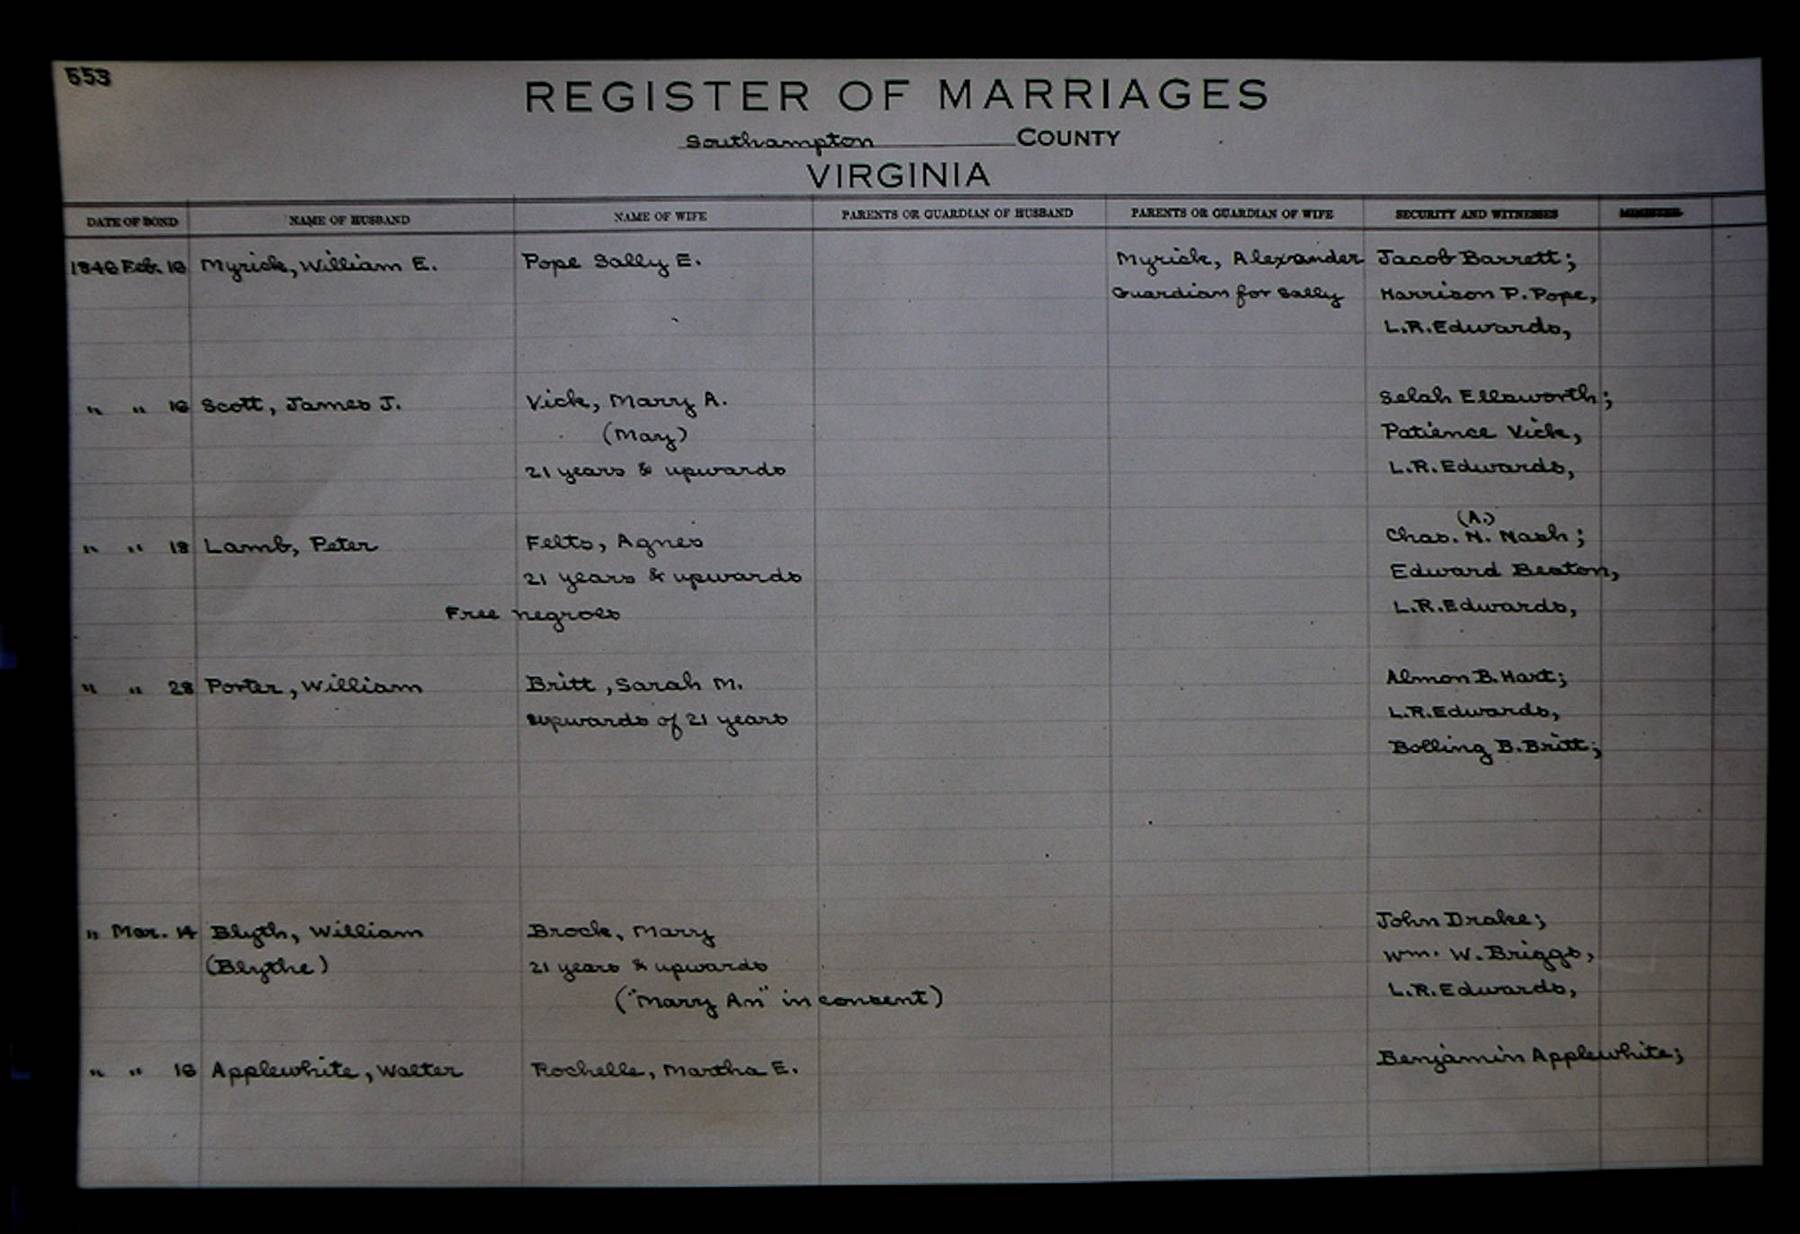 553
REGISTER OF MARRIAGES
Southampton COUNTY
VIRGINIA
DATE OF BOND NAME OF HUSBAND NAME OF WIFE PARENTS OR GUARDIAN OF HUSBAND PARENTS OR GUARDIAN OF WIFE SECURITY AND WITNESSES MINISTER
1846 Feb. 16 Myrick, William E. Pope Sally E. Myrick, Alexander Jacob Barrett;
Guardian for Sally Harrison P. Pope,
L.R. Edwards,
" " 16 Scott, James J. Vick, Mary A. Selah Ellsworth;
(May) Patience Vick,
21 years & upwards L.R. Edwards,
(A.)
" " 18 Lamb, Peter Felts, Agnes Chas. N. Nash;
21 years & upwards Edward Beaton,
Free negroes L.R. Edwards,
" " 28 Porter, William Britt, Sarah M. Almon B. Hart;
upwards of 21 years L.R. Edwards,
Bolling B. Britt;
" Mar. 14 Blyth, William Brock, Mary John Drake;
(Blythe) 21 years & upwards Wm. W. Briggs,
("Mary An" in consent) L.R. Edwards,
" " 16 Applewhite, Walter Rochelle, Martha E. Benjamin Applewhite;